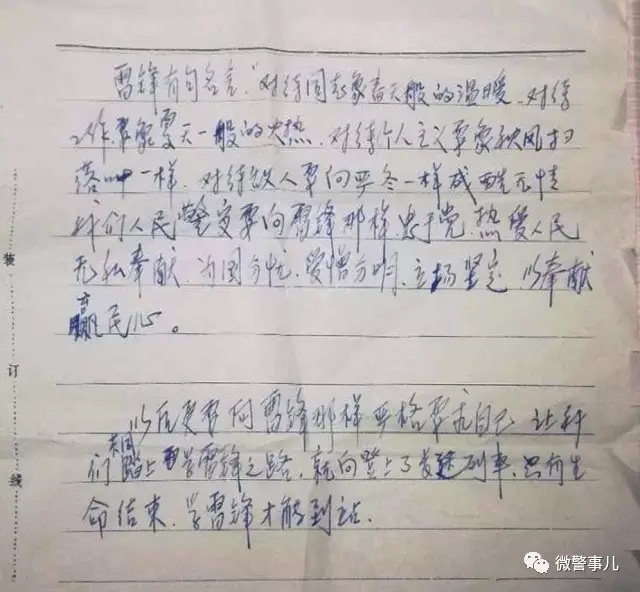 雷锋有句名言，“对待同志象春天般的温暖，对待
工作要象夏天一般的火热，对待个人主义要象秋风扫
落叶一样，对待敌人要向严冬一样残酷无情
我们人民警察要向雷锋那样忠于党，热爱人民
无私奉献，为国分忧，爱憎分明，立场坚定，以奉献
赢民心。
以后更要向雷锋那样严格要求自己 让我
们共同踏上学雷锋之路，就向登上了列车，只有生
命结束，学雷锋才能到站。
装
订
线
微警事儿